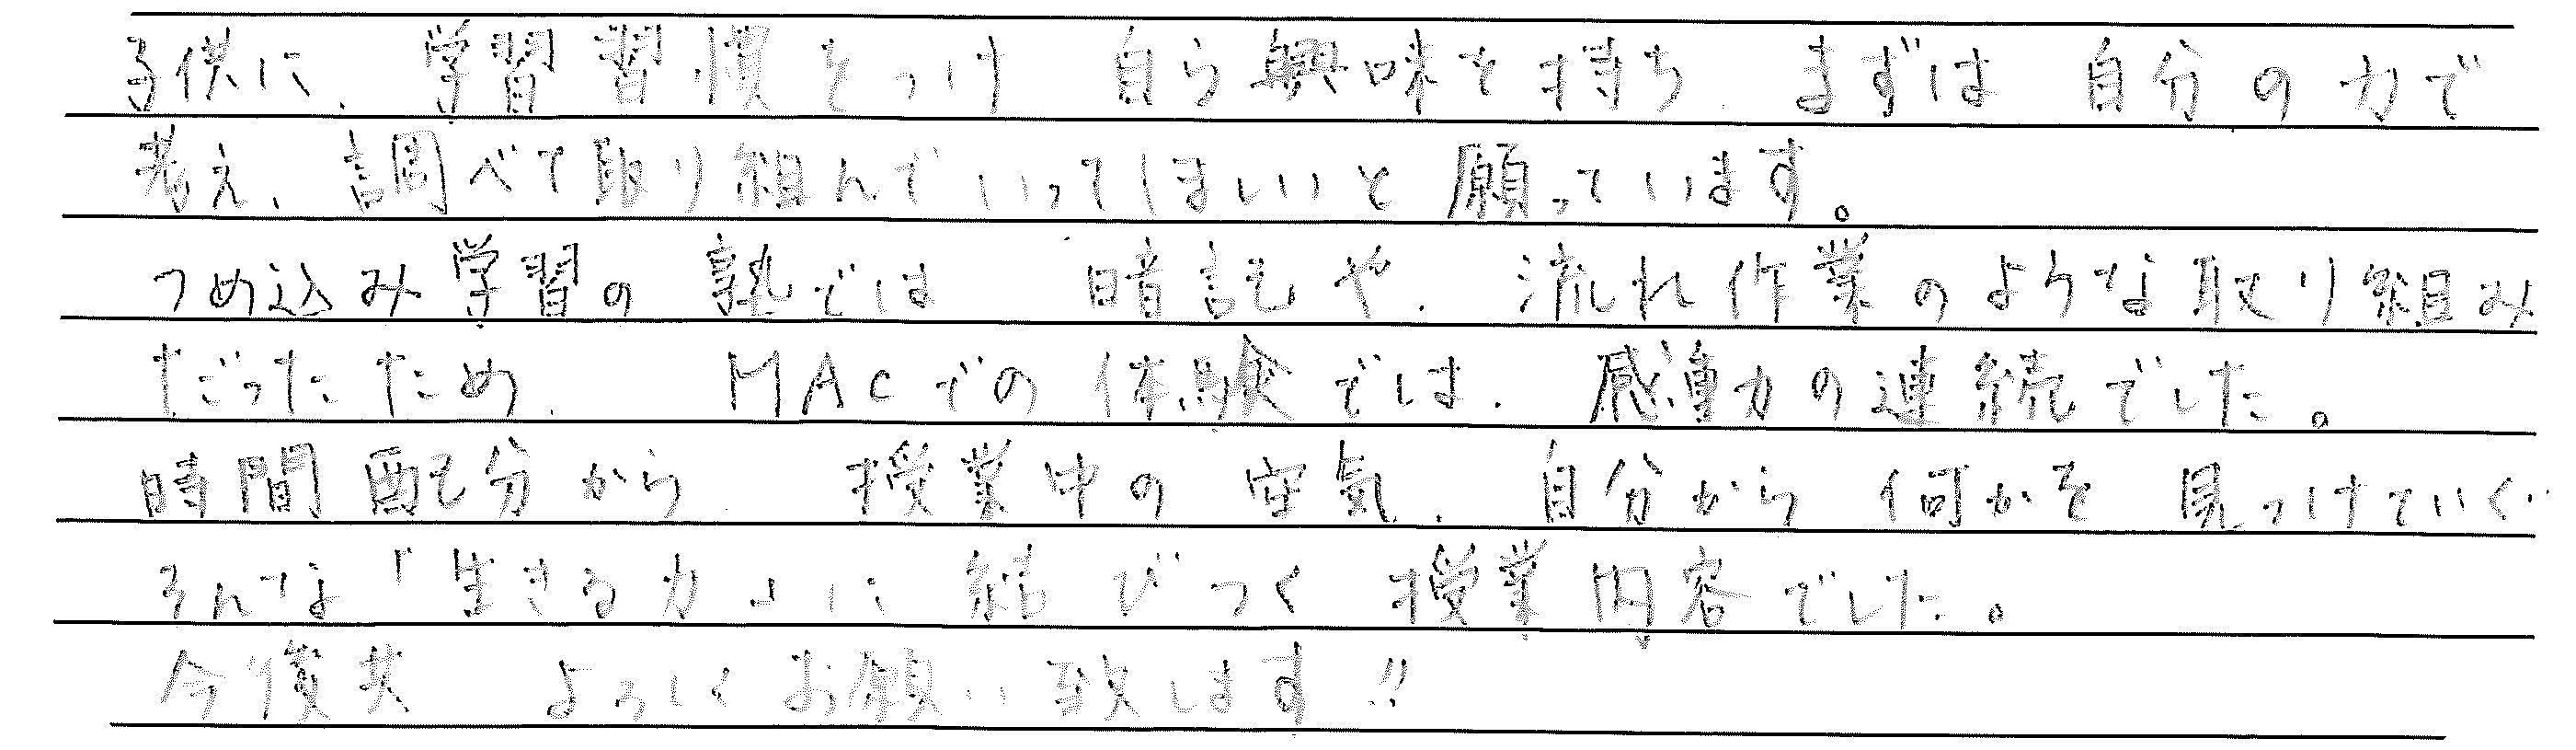 子供に、学習習慣をつけ 自ら興味を持ち、まずは 自分の力で
考え、調べて取り組んでいってほしいと願っています。
つめ込み学習の塾では 暗記や、流れ作業のような取り組み
だったため、 MACでの体験では、感動の連続でした。
時間配分から、授業中の空気、自分から何かを見つけていく、
そんな「生きる力」に結びつく授業内容でした。
今後共 よろしくお願い致します!!